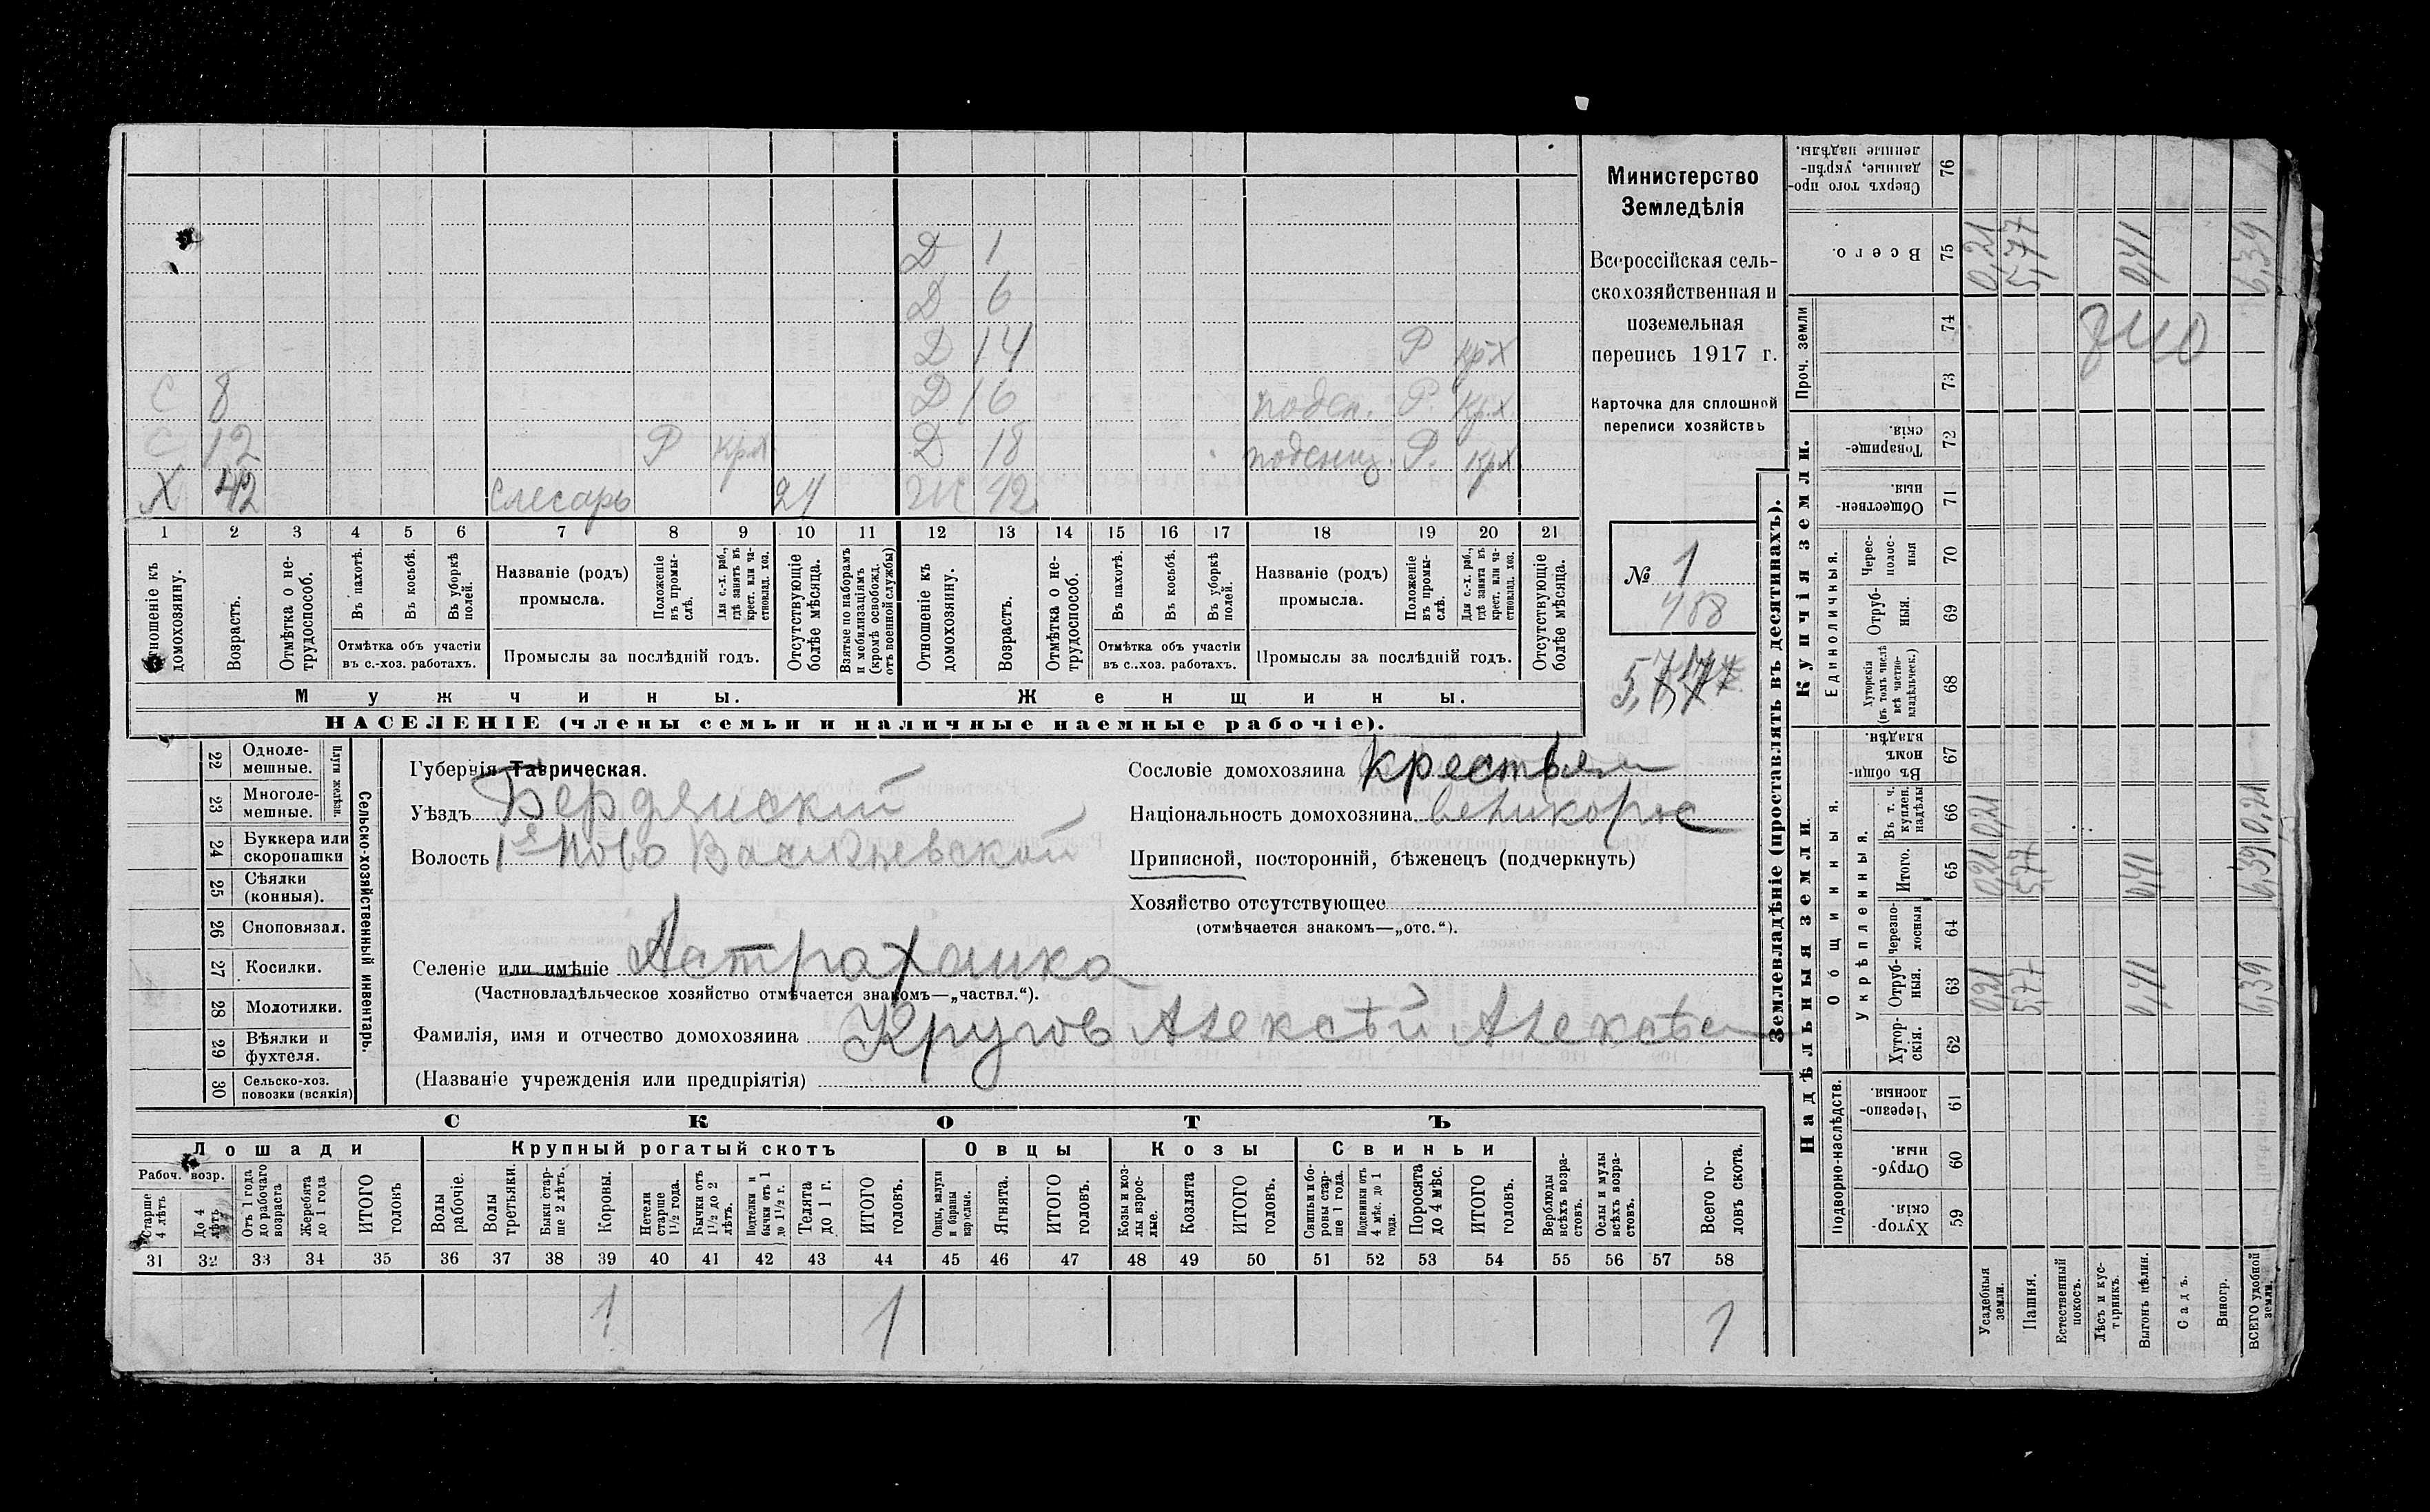 Д 1
Д 6
Д 14 Р кр х
С 8 Д 16 подсн. Р. кр.х.
С 12 Р кр х Д 18 поденщ. Р. кр х
Х 42 слесарь 24 Ж 42
1 2 3 4 5 6 7 8 9 10 11 12 13 14 15 16 17 18 19 20 21
Отношеніе къ домохозяину.
Возрастъ.
Отмѣтка о не-трудоспособ.
Въ пахотѣ.
Въ косьбѣ.
Въ уборкѣ полей.
Отмѣтка объ участіи
въ с.-хоз. работахъ.
Названіе (родъ)
промысла.
Положеніе въ промы-слѣ.
Для с.-х. раб., гдѣ занятъ въ крест. или ча-стновлад. хоз.
Промыслы за послѣдній годъ.
Отсутствующіе болѣе мѣсяца.
Взятые по наборамъ и мобилизаціямъ (кромѣ освобожд. отъ военной службы)
Отношеніе къ домохозяину.
Возрастъ.
Отмѣтка о не-трудоспособ.
Въ пахотѣ.
Въ косьбѣ.
Въ уборкѣ полей.
Отмѣтка объ участіи
въ с..хоз. работахъ.
Названіе (родъ)
промысла.
Положеніе въ промы-слѣ.
Для с.-х. раб., гдѣ занята въ крест. или ча-стновлад. хоз.
Промыслы за послѣдній годъ.
Отсутствующіе болѣе мѣсяца.
Мужчины.
Женщины.
НАСЕЛЕНІЕ (члены семьи и наличные наемные рабочіе).
Министерство
Земледѣлія
Всероссійская сель-
скохозяйственная и
поземельная
перепись 1917 г.
Карточка для сплошной
переписи хозяйствъ
№ 1
408
Сельско-хозяйственный инвентарь.
Плуги желѣзн.
22 Одноле-мешные.
23 Многоле-мешные.
24 Буккера или скоропашки
25 Сѣялки (конныя).
26 Сноповязал.
27 Косилки.
28 Молотилки.
29 Вѣялки и фухтеля.
30 Сельско-хоз. повозки (всякія)
Губернія Таврическая.
Уѣздъ Бердянскій
Волость 1е Ново Васильевской
Селеніе или имѣніе Астраханка
(Частновладѣльческое хозяйство отмѣчается знакомъ—„частвл.“).
Фамилія, имя и отчество домохозяина Кругов Алексѣй Алексѣев
(Названіе учрежденія или предпріятія)
Сословіе домохозяина крестьян
Національность домохозяина великорос
Приписной, посторонній, бѣженецъ (подчеркнуть)
Хозяйство отсутствующее
(отмѣчается знакомъ—„отс.“).
СКОТЪ
Лошади
Крупный рогатый скотъ
Овцы
Козы
Свиньи
Рабоч. возр.
Старше 4 лѣтъ
До 4 лѣтъ
Отъ 1 года до рабочаго возраста
Жеребята до 1 года
ИТОГО головъ
Волы рабочіе.
Волы третьяки.
Быки стар-ше 2 лѣтъ.
Коровы.
Нетели старше 1½ года.
Бычки отъ 1½ до 2 лѣтъ.
Подтелки и бычки отъ 1 до 1½ г.
Телята до 1 г.
ИТОГО головъ.
Овцы, валухи и бараны взрослые.
Ягнята.
ИТОГО головъ.
Козы и коз-лы взрос-лые.
Козлята
ИТОГО головъ.
Свиньи и бо-ровы стар-ше 1 года.
Подсвинки отъ 4 мѣс. до 1 года.
Поросята до 4 мѣс.
ИТОГО головъ.
Верблюды всѣхъ возра-стовъ.
Ослы и мулы всѣхъ возра-стовъ.
Всего го-ловъ скота.
31 32 33 34 35 36 37 38 39 40 41 42 43 44 45 46 47 48 49 50 51 52 53 54 55 56 57 58
1 1 1
Землевладѣніе (проставлять въ десятинахъ).
Надѣльныя земли.
Купчія земли.
Проч. земли
Подворно-наслѣдств.
Общинныя.
Укрѣпленныя.
Единоличныя.
Хутор-скія. 59
Отруб-ныя. 60
Черезпо-лосныя. 61
Хутор-скія. 62
Отруб-ныя. 63
Черезпо-лосныя 64
Итого. 65
Въ т. ч. куплен. надѣлы 66
Въ общин-номъ владѣн. 67
Хуторскія (въ томъ числѣ всѣ частно-владѣльческ.) 68
Отруб-ныя. 69
Черес-полос-ныя 70
Обществен-ныя. 71
Товарище-скія. 72
73
74
Всего. 75
Сверхъ того про-данные, укрѣп-ленные надѣлы. 76
Усадебныя земли. 0,21 0,21 0,21 0,21
Пашня. 5,77 5,77 5,77
Естественный покосъ.
Лѣсъ и кус-тарникъ.
Выгонъ цѣлин. 0,41 0,41 0,41
Садъ.
Виногр.
ВСЕГО удобной земли. 6,39 6,39 0,21 6,39